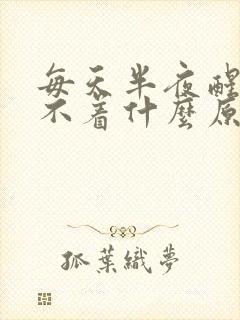 每天半夜醒
不着什麼原
孤葉織夢